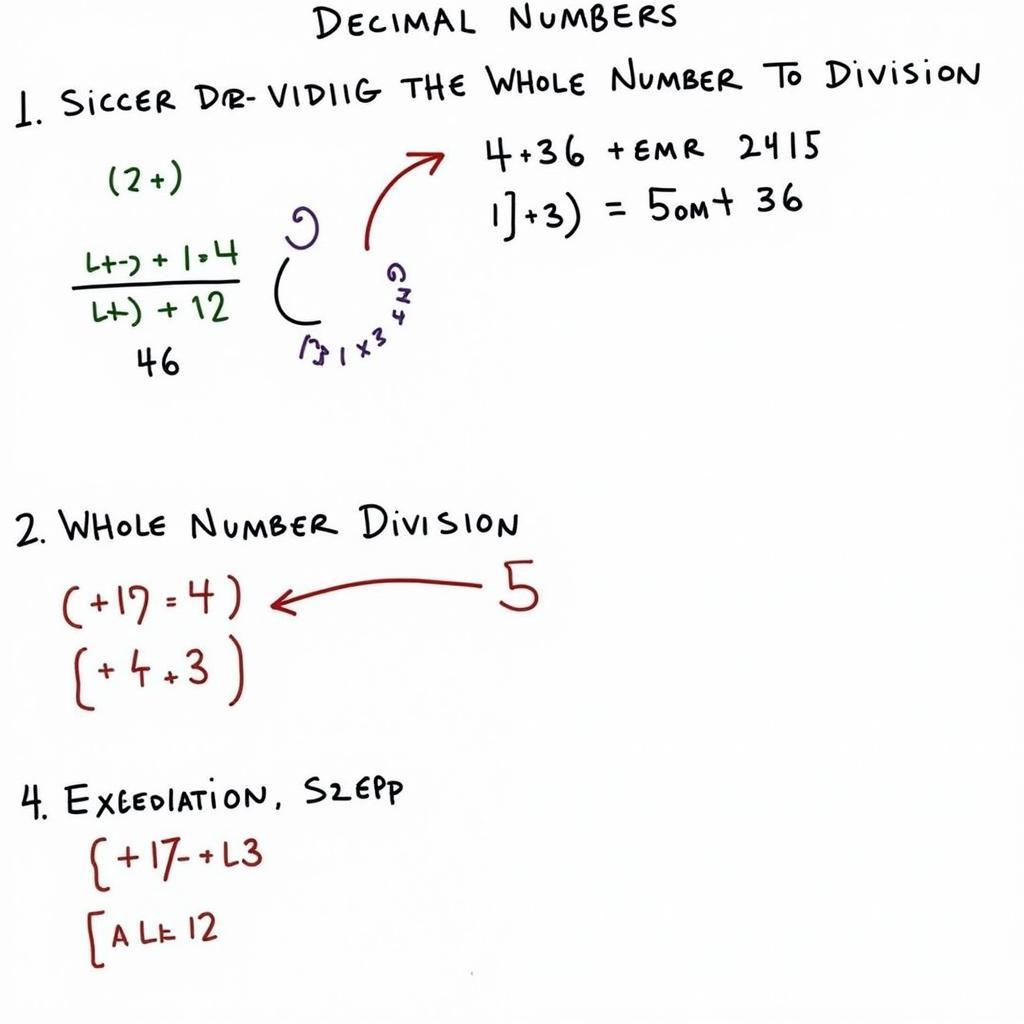 DECIMAL NUMBERS
1. SICCER DR-VIDIIG THE WHOLE NUMBER TO DIVISION
(2+)
4+36 +EMR 2415
1]+3) = 5OM+ 36
+ 1.4
+ 12
46
1 x 3
2. WHOLE NUMBER DIVISION
(+17=4) 5
(+4+3)
4. EXEEDIATION, SZEPP
{+17-+L3
[ALE 12